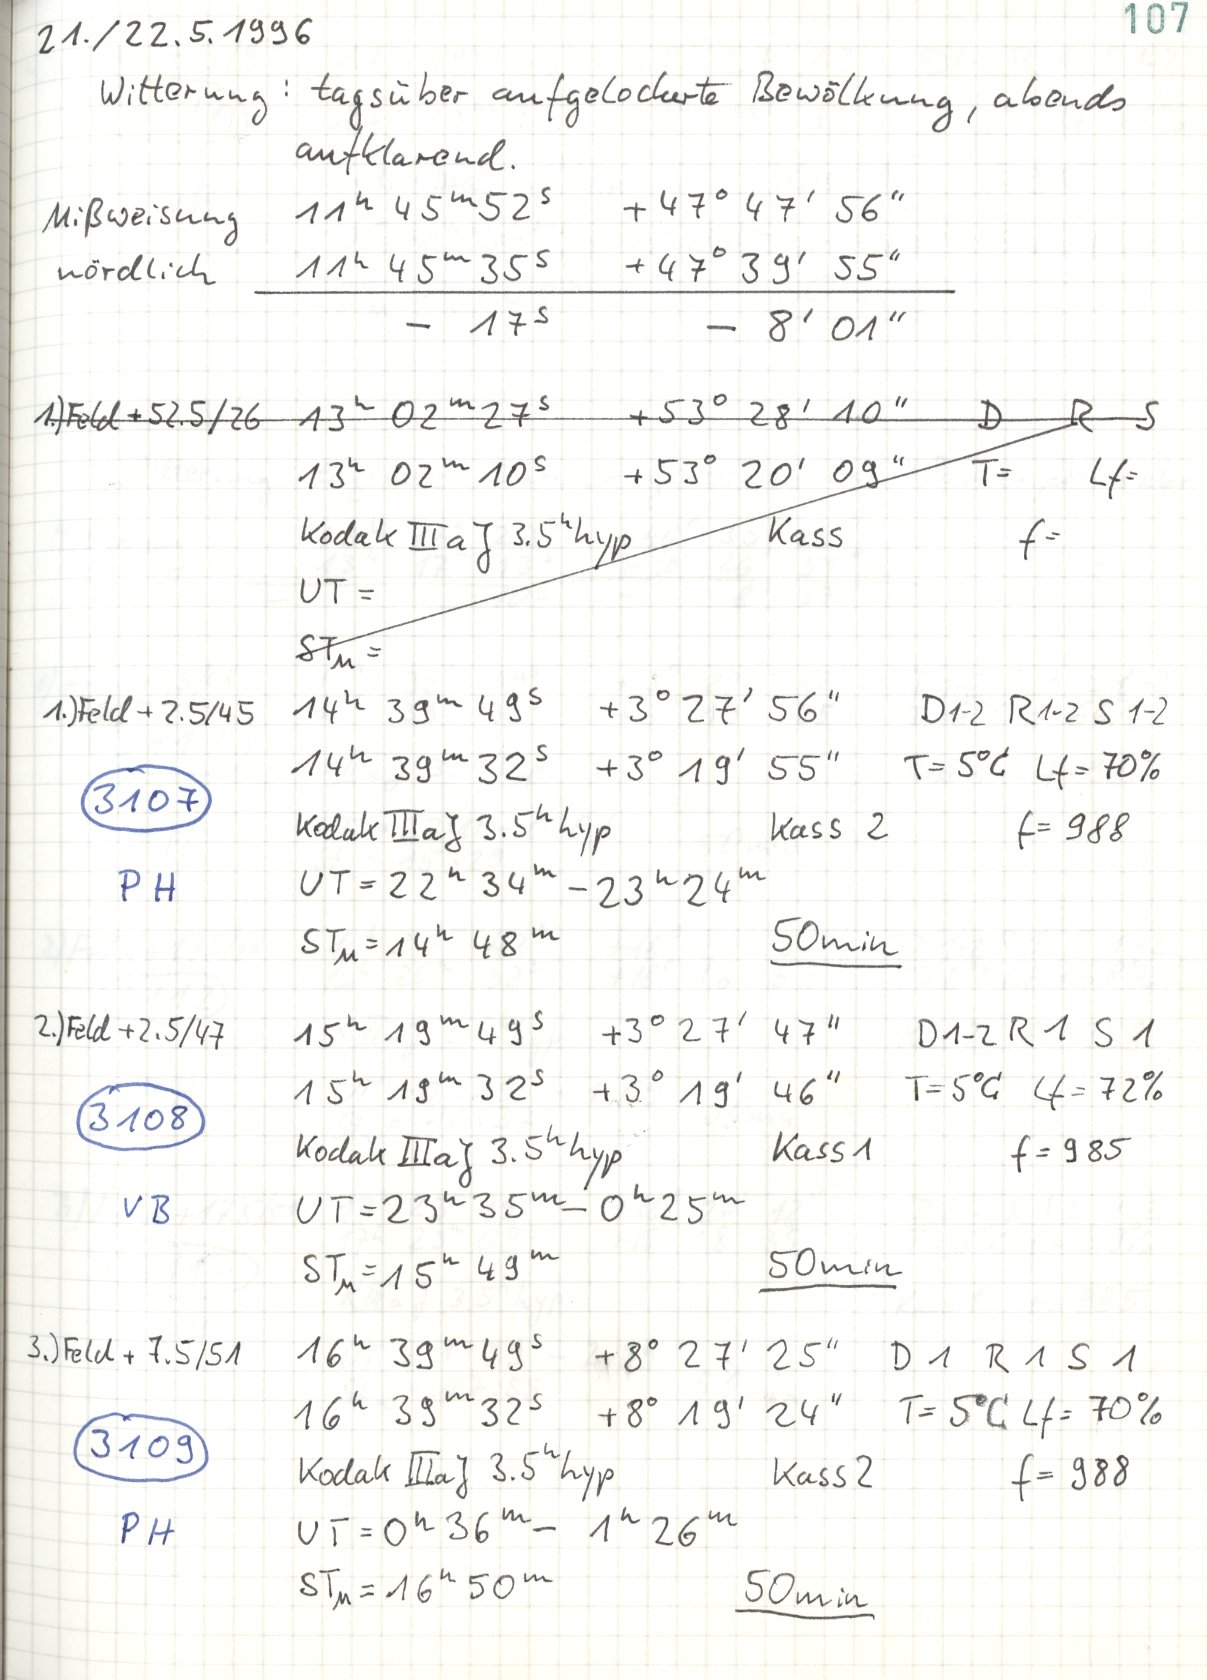 107
21./22.5.1996
Witterung: tagsüber aufgelockerte Bewölkung, abends
aufklarend.
Mißweisung 11h 45m 52s +47° 47' 56"
nördlich 11h 45m 35s +47° 39' 55"
- 17s - 8' 01"
1.) Feld + 52.5/26 13h 02m 27s +53° 28' 10" D R S
13h 02m 10s +53° 20' 09" T= Lf=
Kodak IIIaJ 3.5h hyp Kass f=
UT =
STM =
1.) Feld + 2.5/45 14h 39m 49s +3° 27' 56" D1-2 R1-2 S 1-2
14h 39m 32s +3° 19' 55" T= 5°C Lf= 70%
3107 Kodak IIIaJ 3.5h hyp Kass 2 f= 988
PH UT = 22h 34m - 23h 24m
STM = 14h 48m 50min
2.) Feld +2.5/47 15h 19m 49s +3° 27' 47" D1-2 R 1 S 1
15h 19m 32s +3° 19' 46" T=5°C Lf= 72%
3108 Kodak IIIaJ 3.5h hyp Kass 1 f= 985
VB UT = 23h 35m - 0h 25m
STM = 15h 49m 50min
3.) Feld + 7.5/51 16h 39m 49s +8° 27' 25" D 1 R 1 S 1
16h 39m 32s +8° 19' 24" T= 5°C Lf= 70%
3109 Kodak IIIaJ 3.5h hyp Kass 2 f= 988
PH UT = 0h 36m - 1h 26m
STM = 16h 50m 50min